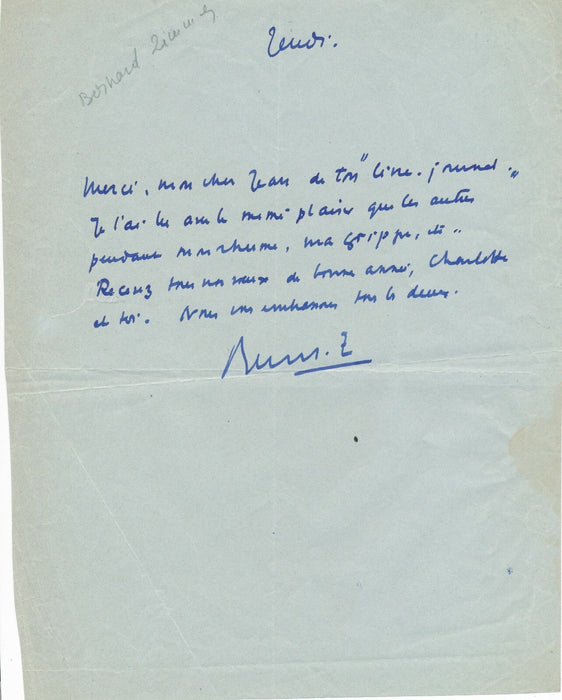 Bernard Zimmer
Jeudi.
Merci, mon cher Jean de ton "livre-journal".
Je l'ai lu avec le même plaisir que les autres
pendant mon rhume, ma grippe, etc..
Recevez tous nos vœux de bonne année, Charlotte
et toi. Nous vous embrassons tous les deux.